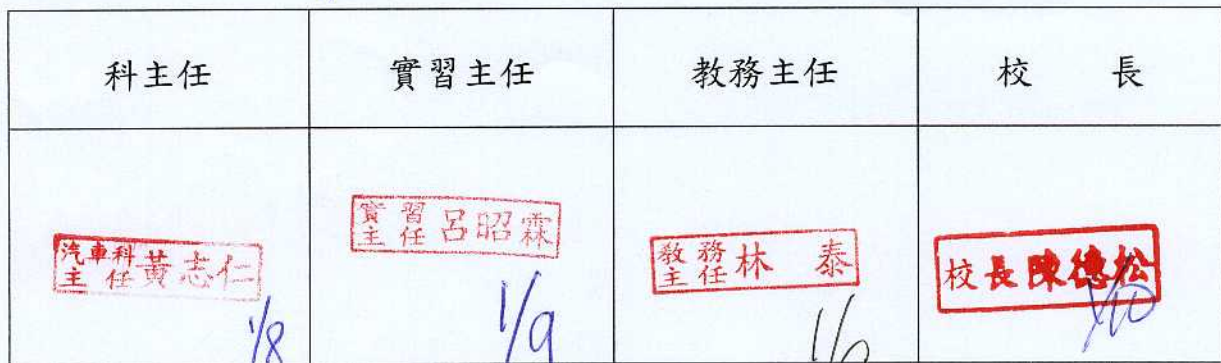 科主任 實習主任 教務主任 校 長
汽車科主任 黃志仁
1/8
實習主任 呂昭霖
1/9
教務主任 林 泰
校長 陳德松
1/10